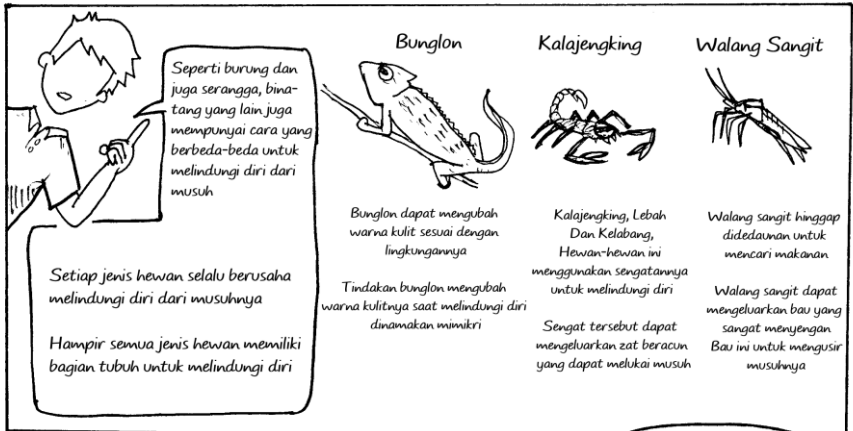 Seperti burung dan
juga serangga, bina-
tang yang lain juga
mempunyai cara yang
berbeda-beda untuk
melindungi diri dari
musuh
Setiap jenis hewan selalu berusaha
melindungi diri dari musuhnya
Hampir semua jenis hewan memiliki
bagian tubuh untuk melindungi diri
Bunglon
Bunglon dapat mengubah
warna kulit sesuai dengan
lingkungannya
Tindakan bunglon mengubah
warna kulitnya saat melindungi diri
dinamakan mimikri
Kalajengking
Kalajengking, Lebah
Dan Kelabang,
Hewan-hewan ini
menggunakan sengatannya
untuk melindungi diri
Sengat tersebut dapat
mengeluarkan zat beracun
yang dapat melukai musuh
Walang Sangit
Walang sangit hinggap
didedaunan untuk
mencari makanan
Walang sangit dapat
mengeluarkan bau yang
sangat menyengan
Bau ini untuk mengusir
musuhnya